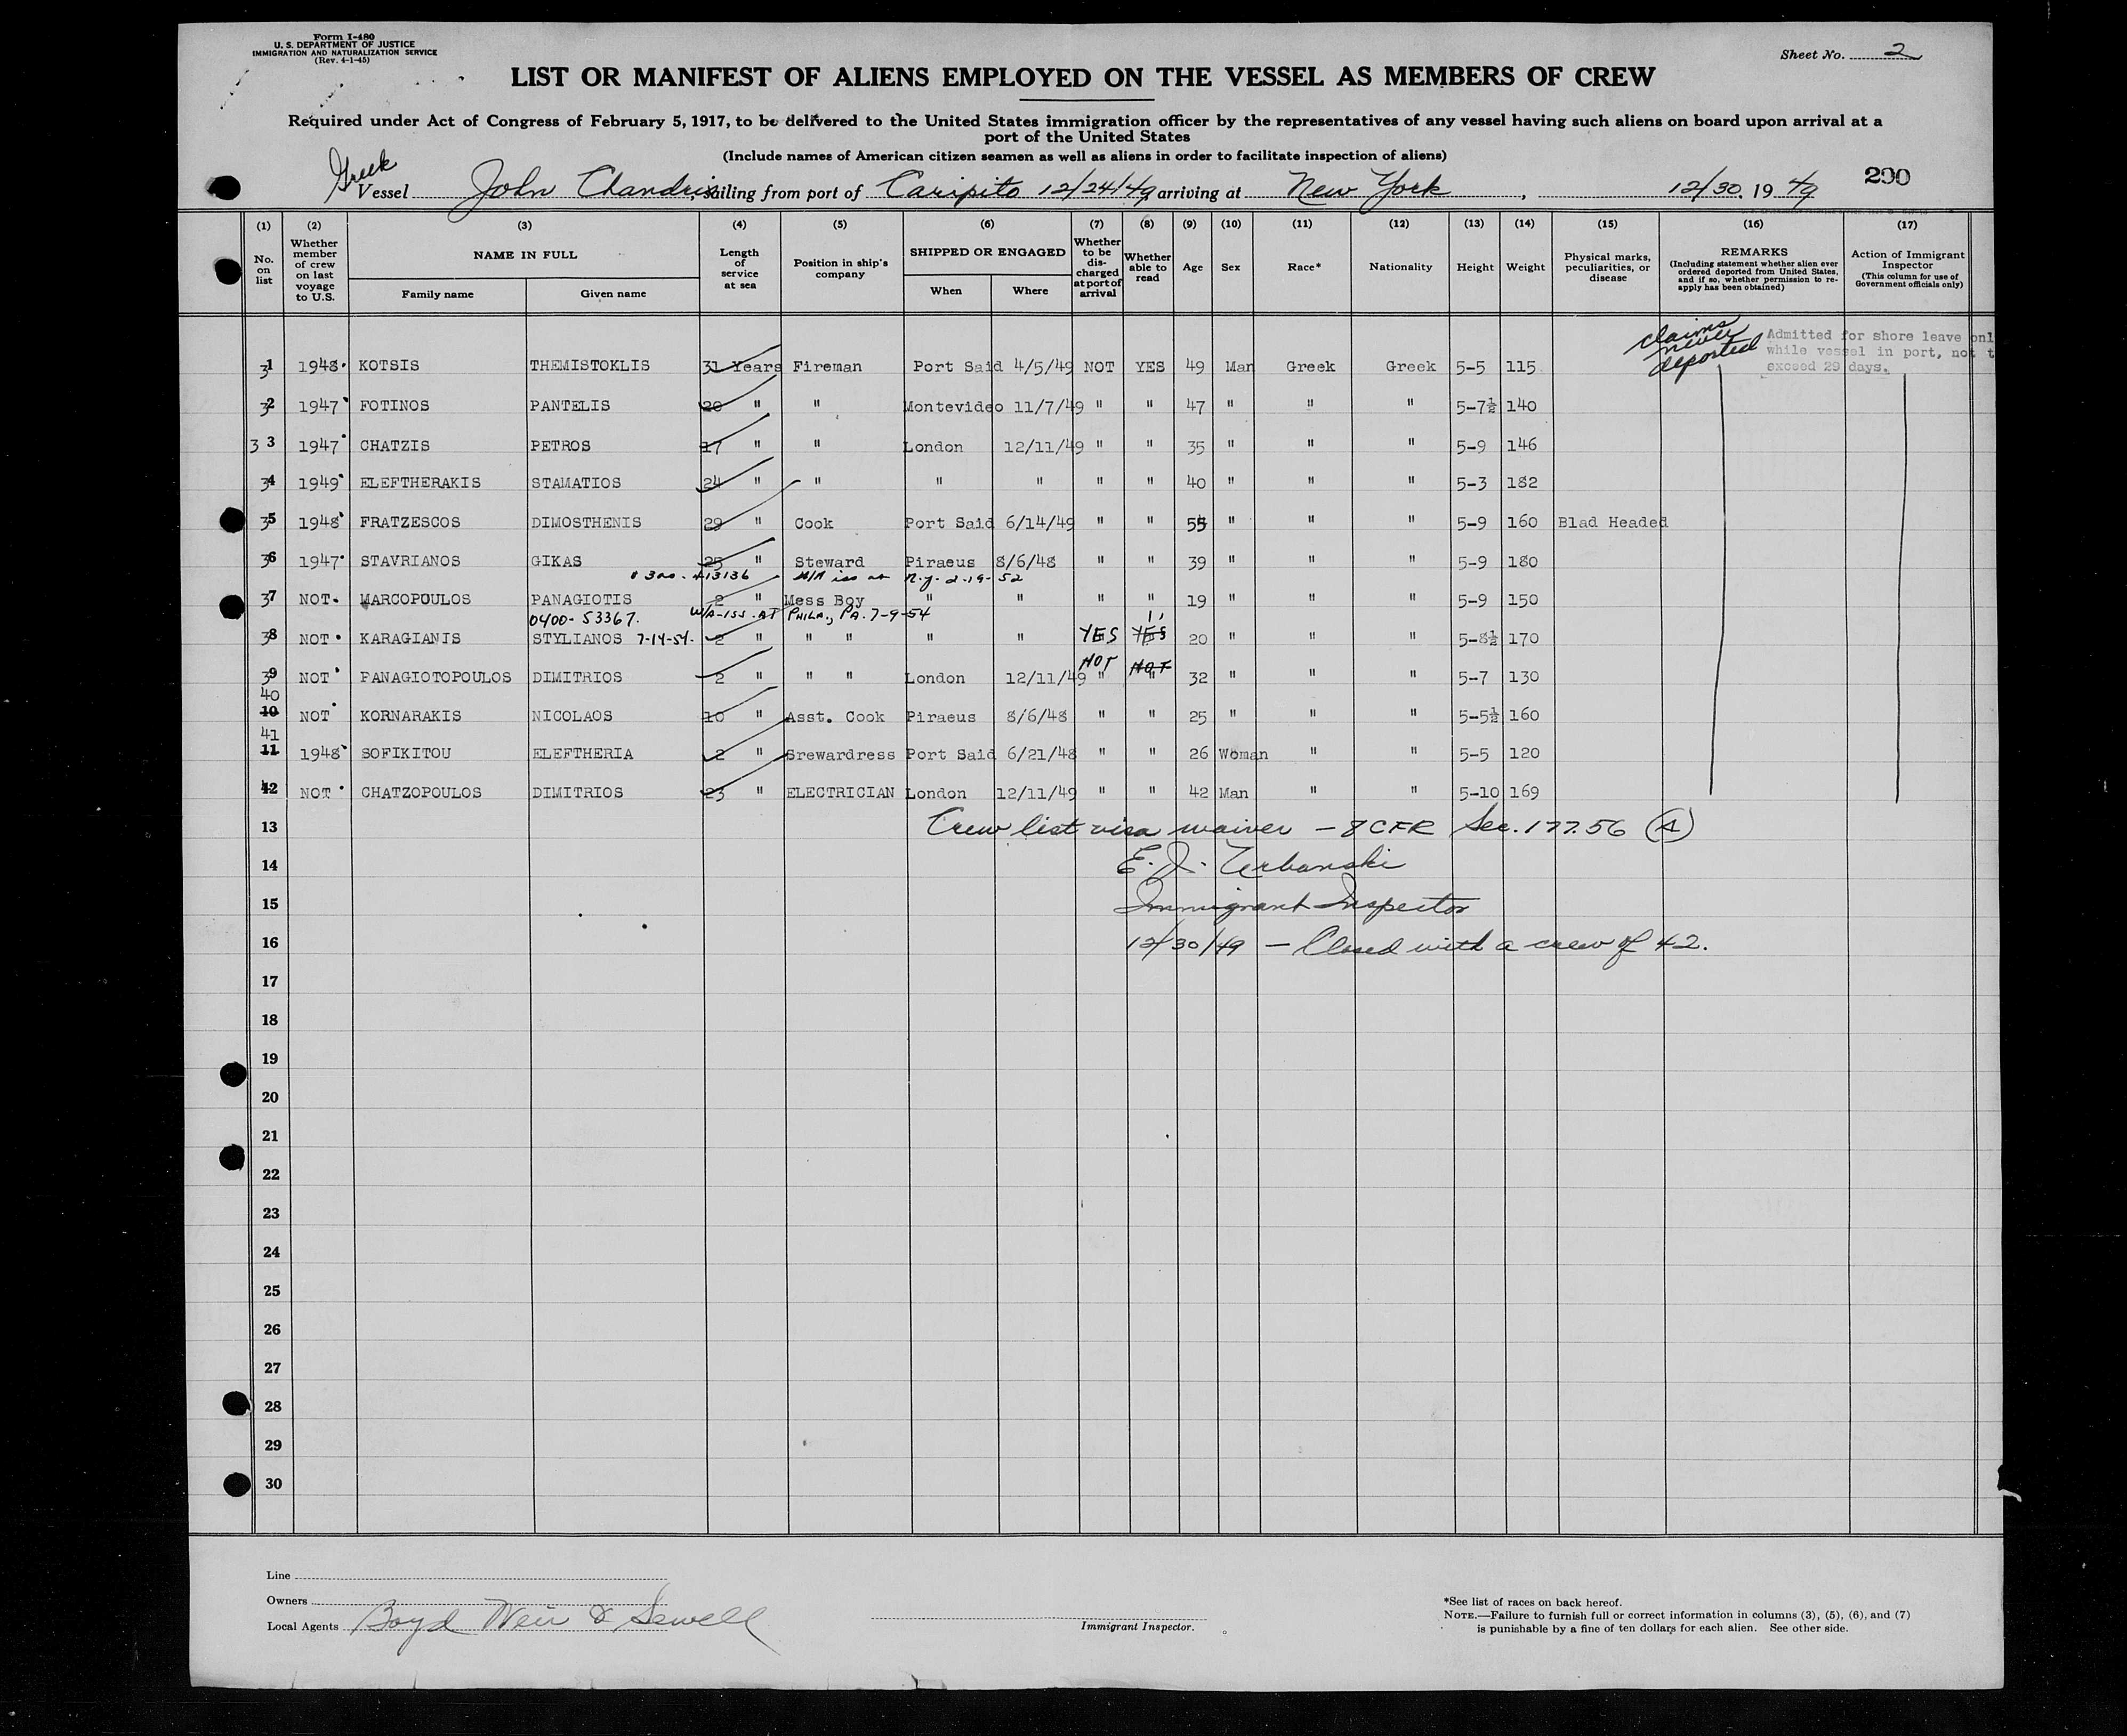 Form I-480
U. S. DEPARTMENT OF JUSTICE
IMMIGRATION AND NATURALIZATION SERVICE
(Rev. 4-1-45)
Sheet No. 2
LIST OR MANIFEST OF ALIENS EMPLOYED ON THE VESSEL AS MEMBERS OF CREW
Required under Act of Congress of February 5, 1917, to be delivered to the United States immigration officer by the representatives of any vessel having such aliens on board upon arrival at a
port of the United States
(Include names of American citizen seamen as well as aliens in order to facilitate inspection of aliens)
Greek
Vessel John Chandris, sailing from port of Caripito 12/24/49, arriving at New York, 12/30, 19 49 290
(1) (2) (3) (4) (5) (6) (7) (8) (9) (10) (11) (12) (13) (14) (15) (16) (17)
No. on list Whether member of crew on last voyage to U.S. NAME IN FULL Family name Given name Length of service at sea Position in ship's company SHIPPED OR ENGAGED When Where Whether to be discharged at port of arrival Whether able to read Age Sex Race* Nationality Height Weight Physical marks, peculiarities, or disease REMARKS (Including statement whether alien ever ordered deported from United States, and if so, whether permission to re-apply has been obtained) Action of Immigrant Inspector (This column for use of Government officials only)
claims never deported
Admitted for shore leave onl
while vessel in port, not t
exceed 29 days.
31 1948 KOTSIS THEMISTOKLIS 31 Years Fireman Port Said 4/5/49 NOT YES 49 Man Greek Greek 5-5 115
32 1947 FOTINOS PANTELIS 20 " " Montevideo 11/7/49 " " 47 " " " 5-7½ 140
33 1947 CHATZIS PETROS 17 " " London 12/11/49 " " 35 " " " 5-9 146
34 1949 ELEFTHERAKIS STAMATIOS 24 " " " " " " 40 " " " 5-3 182
35 1948 FRATZESCOS DIMOSTHENIS 29 " Cook Port Said 6/14/49 " " 55 " " " 5-9 160 Blad Headed
36 1947 STAVRIANOS GIKAS 25 " Steward Piraeus 8/6/48 " " 39 " " " 5-9 180
13136 iss at N.Y. 2-19-52
37 NOT MARCOPOULOS PANAGIOTIS 2 " Mess Boy " " " " 19 " " " 5-9 150
0400-53367. W/A-ISS. AT PHILA., PA. 7-9-54
38 NOT KARAGIANIS STYLIANOS 7-14-54. 2 " " " " " YES YES " 20 " " " 5-8½ 170
NOT NOT
39 NOT PANAGIOTOPOULOS DIMITRIOS 2 " " " London 12/11/49 " " 32 " " " 5-7 130
40
10 NOT KORNARAKIS NICOLAOS 10 " Asst. Cook Piraeus 8/6/48 " " 25 " " " 5-5½ 160
41
11 1948 SOFIKITOU ELEFTHERIA 2 " Srewardress Port Said 6/21/48 " " 26 Woman " " 5-5 120
42 NOT CHATZOPOULOS DIMITRIOS 23 " ELECTRICIAN London 12/11/49 " " 42 Man " " 5-10 169
13 Crew list visa waiver - 8 CFR Sec. 177.56 (A)
14 E. J. Urbanski
15 Immigrant Inspector
16 12/30/49 - Closed with a crew of 42.
17
18
19
20
21
22
23
24
25
26
27
28
29
30
Line
Owners
Local Agents Boyd Weir & Sewell
Immigrant Inspector.
*See list of races on back hereof.
NOTE.—Failure to furnish full or correct information in columns (3), (5), (6), and (7)
is punishable by a fine of ten dollars for each alien. See other side.